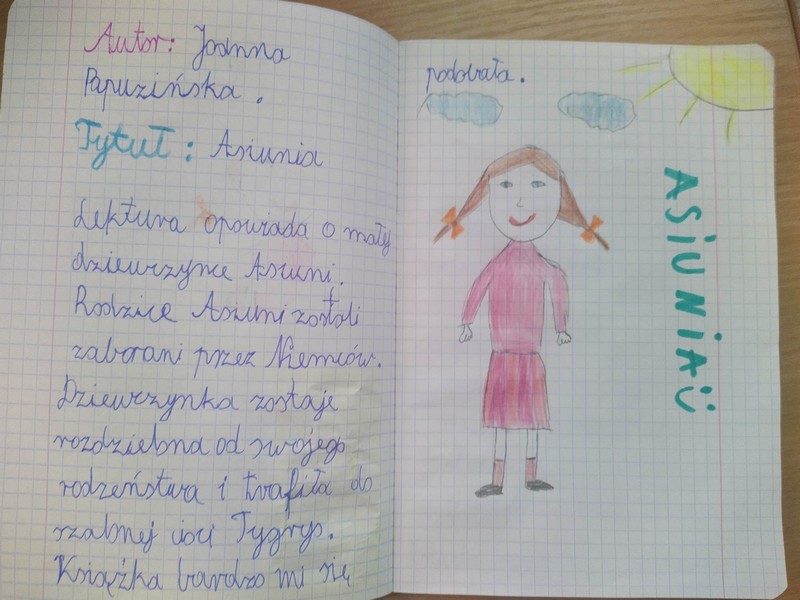 Autor: Joanna
Papuzińska.
Tytuł: Asiunia
Lektura opowiada o małej
dziewczynce Asiuni.
Rodzice Asiuni zostali
zabrani przez Niemców.
Dziewczynka zostaje
rozdzielona od swojego
rodzeństwa i trafiła do
szalnej cioci Tygrys.
Książka bardzo mi się
podobała.
ASIUNIA